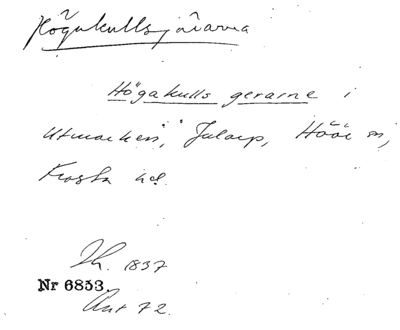 Högakullsjärarna
Högakulls gerarne i
Utmarken, Jularp, Höör sn,
Frosta hd.
Th. 1837
Nr 6853.
Ant 72.